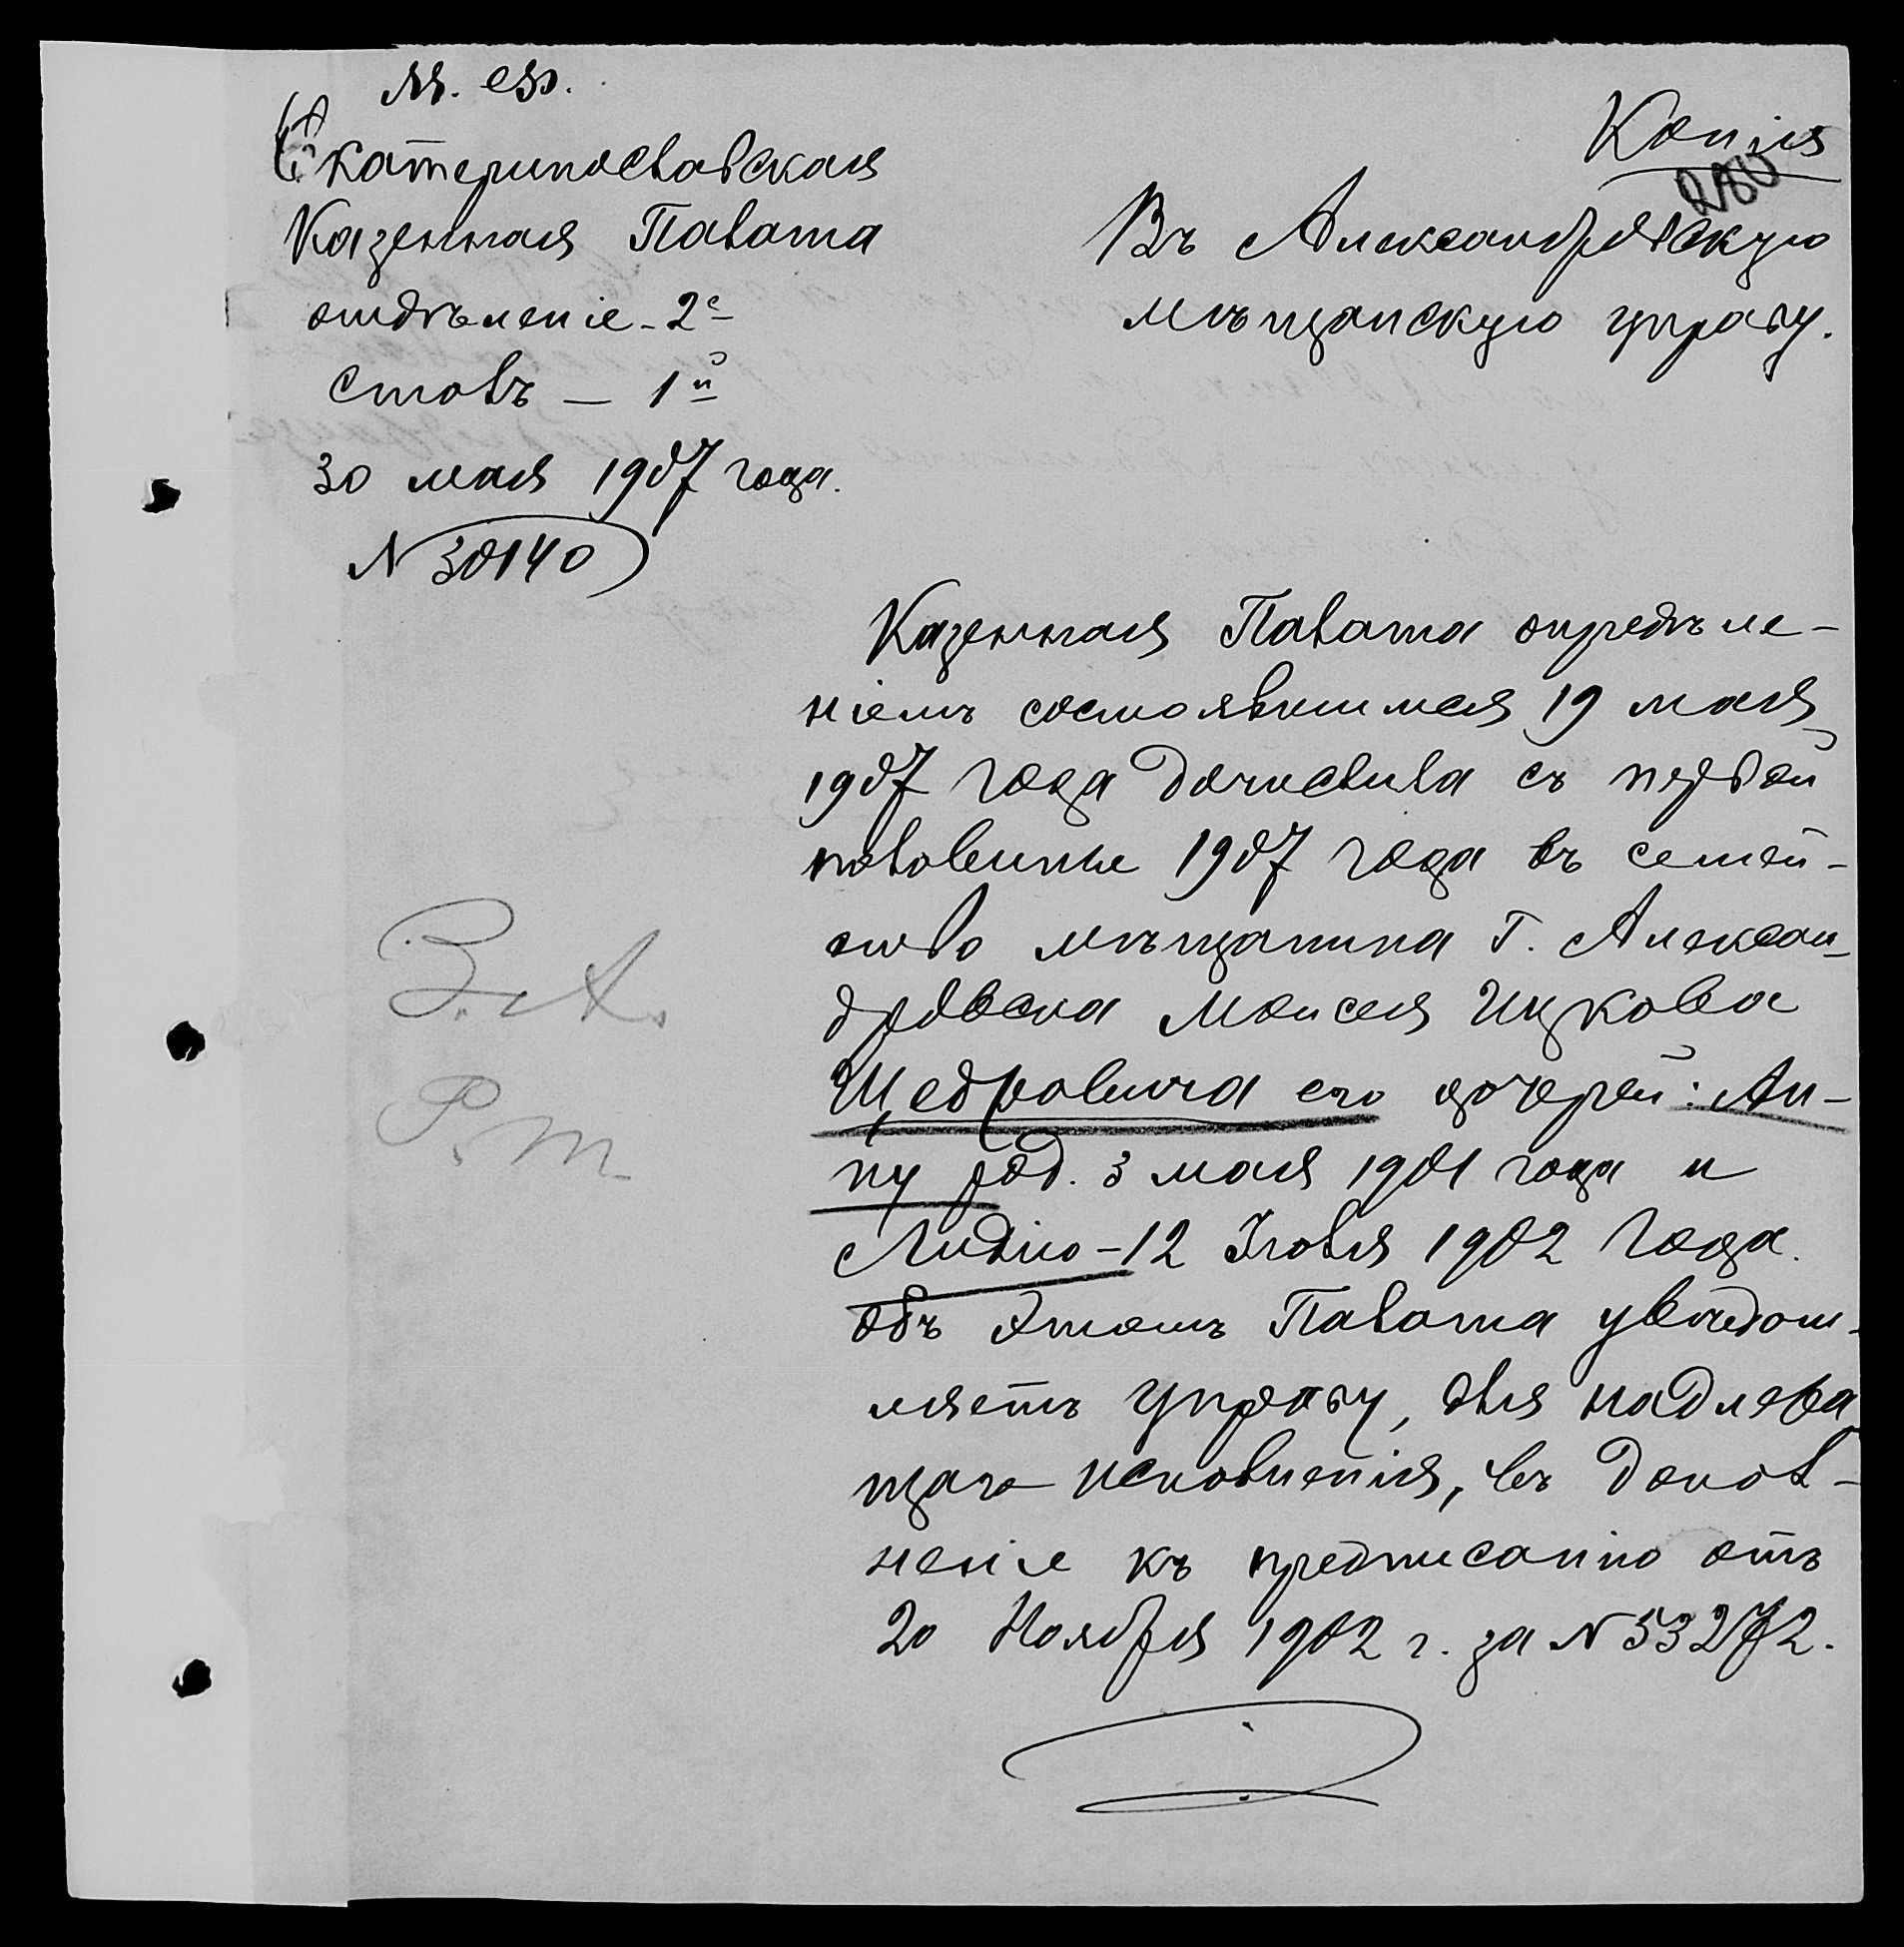 М. Ф.
Екатеринославская
Казенная Палата
отдѣленіе - 2е
столъ — 1й
30 мая 1907 года.
N 30140
Копія
Въ Александровскую
мѣщанскую управу.
Казенная Палата опредѣле-
ніемъ состоявшимся 19 мая
1907 года дочислила съ первой
половины 1907 года въ семей-
ство мѣщанина г. Алексан-
дровска Моисея Ицкова
Щедровича его дочерей: Ан-
ну род. 3 мая 1901 года и
Лидію - 12 Іюля 1902 года.
Объ этомъ Палата увѣдом-
ляетъ управу, для надлежа-
щаго исполненія, въ допол-
неніе къ предписанію отъ
20 Ноября 1902 г. за N 53272.
В. А.
Р. т